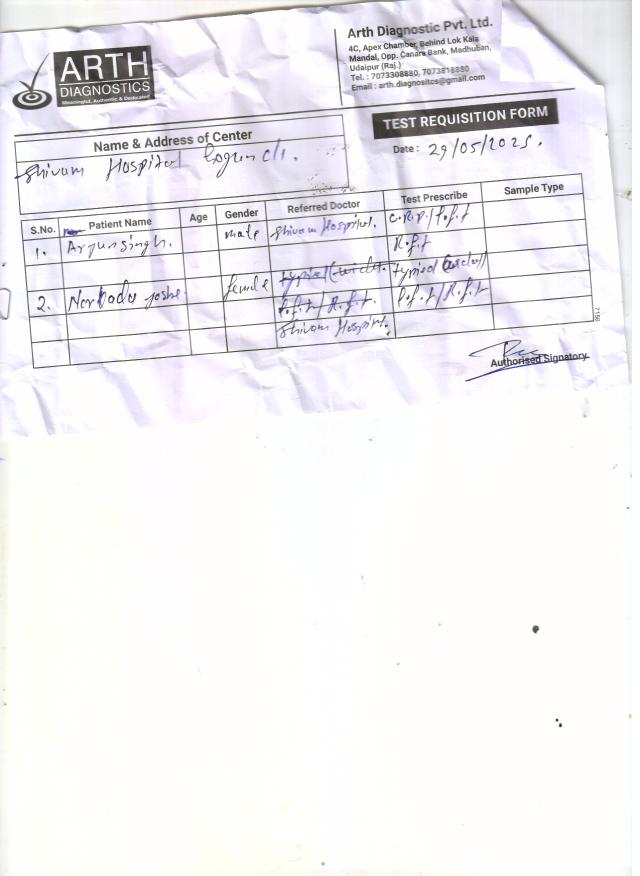 ARTH
DIAGNOSTICS
Meaningful, Authentic & Dedicated
Arth Diagnostic Pvt. Ltd.
4C, Apex Chamber, Behind Lok Kala
Mandal, Opp. Canara Bank, Madhuban,
Udaipur (Raj.)
Tel. : 7073308880, 7073818880
Email : arth.diagnositcs@gmail.com
TEST REQUISITION FORM
Name & Address of Center
Shivam Hospital
Date : 29/05/2025.
S.No. Patient Name Age Gender Referred Doctor Test Prescribe Sample Type
1. Arjunsingh. male Shivam Hospital. C.R.P/l.f.t
R.f.t
2. Narbada joshi female typical
l.f.t/R.f.t. l.f.t/R.f.t
Shivam Hospital.
7150
Authorised Signatory